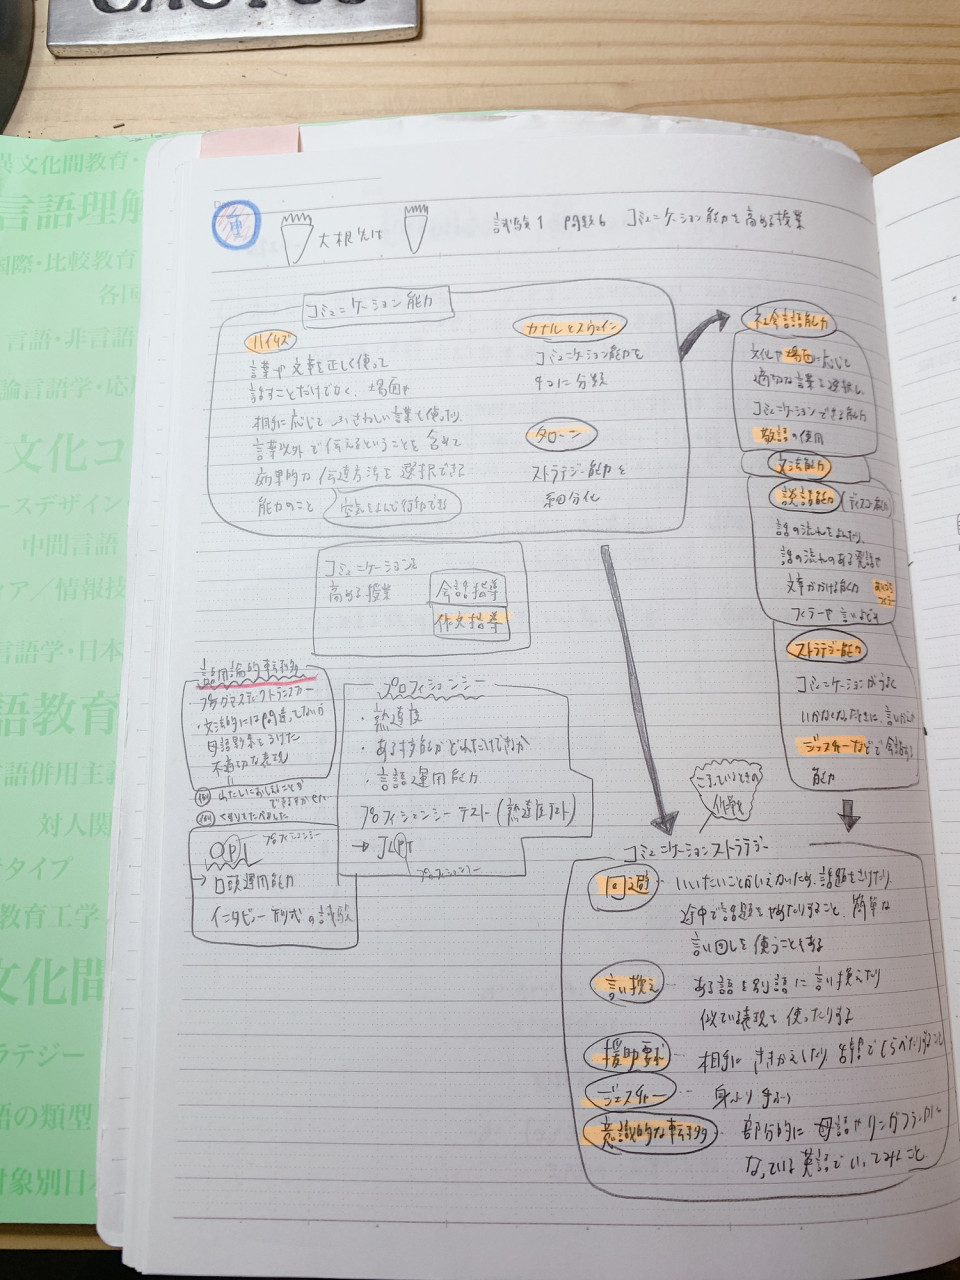 CACTUS
異文化間教育・
言語理解
国際・比較教育
各国
言語・非言語
論言語学・応
文化コ
ースデザイン
中間言語
ィア／情報技
言語学・日本
語教育
言語併用主
対人関
タイプ
教育工学
文化間
ラテジー
語の類型
対象別日本
重
大根先生
試験1 問題6 コミュニケーション能力を高める授業
コミュニケーション能力
ハイムズ
言葉や文章を正しく使って
話すことだけでなく、場面や
相手に応じて ふさわしい言葉を使ったり、
言葉以外で伝えるということを含めて
効果的な伝達方法を選択できる
能力のこと
空気をよんで行動できる
カナルとスウェイン
コミュニケーション能力を
4つに分類
タローン
ストラテジー能力を
細分化
社会言語能力
文化や場面に応じて
適切な言葉を選択し、
コミュニケーションできる能力
敬語の使用
文法能力
談話能力(ディスコース能力)
話の流れをよんだり、
話の流れのある発話や
文章がかける能力
フィラーや言いよどみ
ストラテジー能力
コミュニケーションがうまく
いかなくなったときに、言いかえや
ジェスチャーなどで会話する
能力
コミュニケーションを
高める授業
会話指導
作文指導
語用論的転移
プラグマティックトランスファー
・文法的には間違ってないが
母語影響をうけた
不適切な表現
プロフィシェンシー
・熟達度
・ある言語能力がどれだけできるか
・言語運用能力
プロフィシェンシーテスト(熟達度テスト)
→ JLPT
プロフィシェンシー
OPI
プロフィシェンシー
→ 口頭運用能力
インタビー形式の試験
こまっているときの
作戦を
コミュニケーションストラテジー
回避… いいたいことがいえないため、話題をさけたり、
途中で話題をやめたりすること、簡単な
言い回しを使うこともある
言い換え… ある語を別語に言い換えたり
似ている表現を使ったりする
援助要求… 相手にききかえしたり 辞書でしらべたりすること
ジェスチャー… 身ぶり手ぶり
意識的な転移… 部分的に母語やリンガフランカに
なっている英語でいってみること